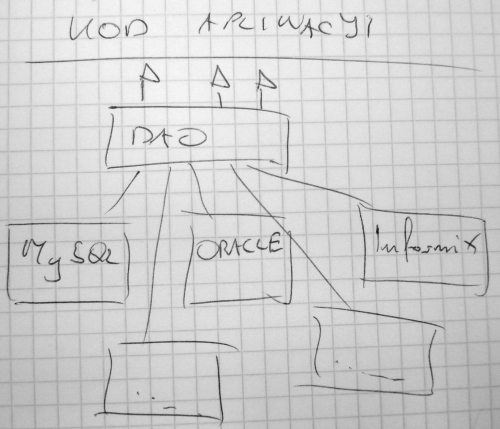 KOD APLIKACYI
DAO
MySQL
ORACLE
Informix
...
...